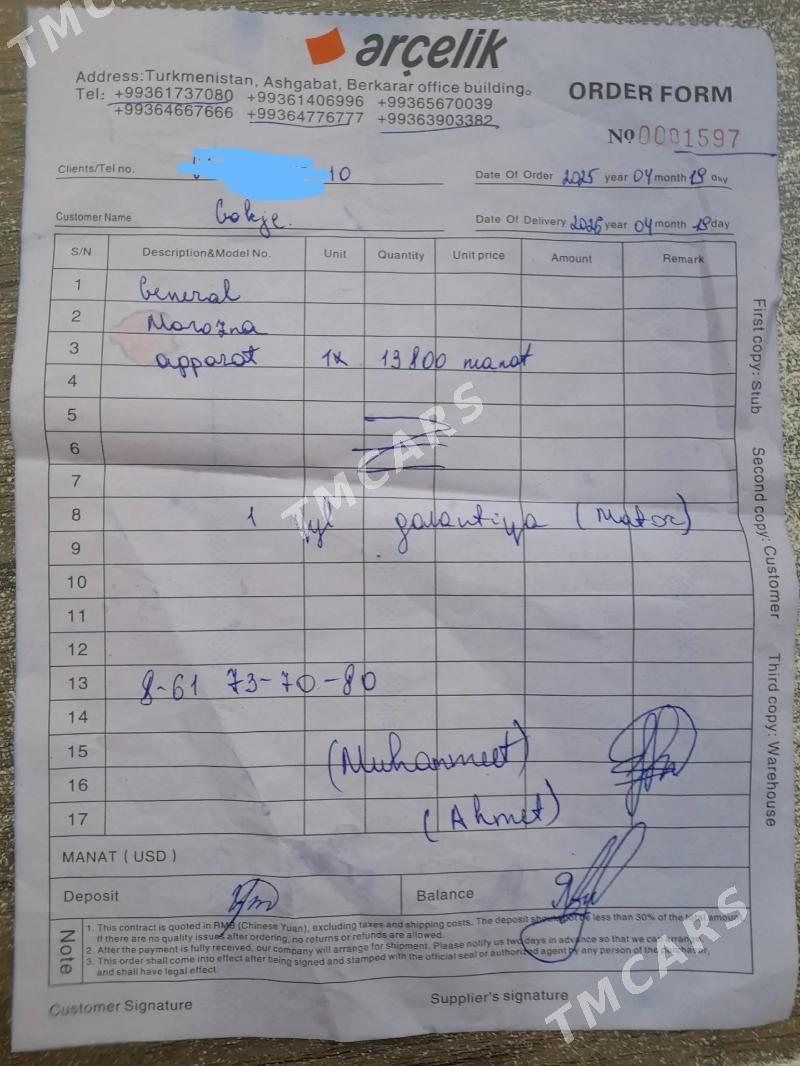 TMCARS
arçelik
Address:Turkmenistan, Ashgabat, Berkarar office building。
Tel: +99361737080 +99361406996 +99365670039
+99364667666 +99364776777 +99363903382
ORDER FORM
Nº 0001597
Clients/Tel no. 10
Date Of Order 2025 year 04 month 19 day
Customer Name Gokje.
Date Of Delivery 2025 year 04 month 19 day
S/N Description&Model No. Unit Quantity Unit price Amount Remark
1 General
2 Marozna
3 apparat 1x 13800 manat
4
5
6
7
TMCARS
8 1 ýyl galantiya (Mator)
9
10
11
12
13 8-61 73-70-80
14
15 (Muhammet)
16
17 (Ahmet)
First copy: Stub Second copy: Customer Third copy: Warehouse
MANAT ( USD )
Deposit Balance
Note
1. This contract is quoted in RMB (Chinese Yuan), excluding taxes and shipping costs. The deposit should not be less than 30% of the total amount.
If there are no quality issues after ordering, no returns or refunds are allowed.
2. After the payment is fully received, our company will arrange for shipment. Please notify us two days in advance so that we can arrange.
3. This order shall come into effect after being signed and stamped with the official seal or authorized agent by any person of the purchaser,
and shall have legal effect.
Customer Signature Supplier's signature
TMCARS